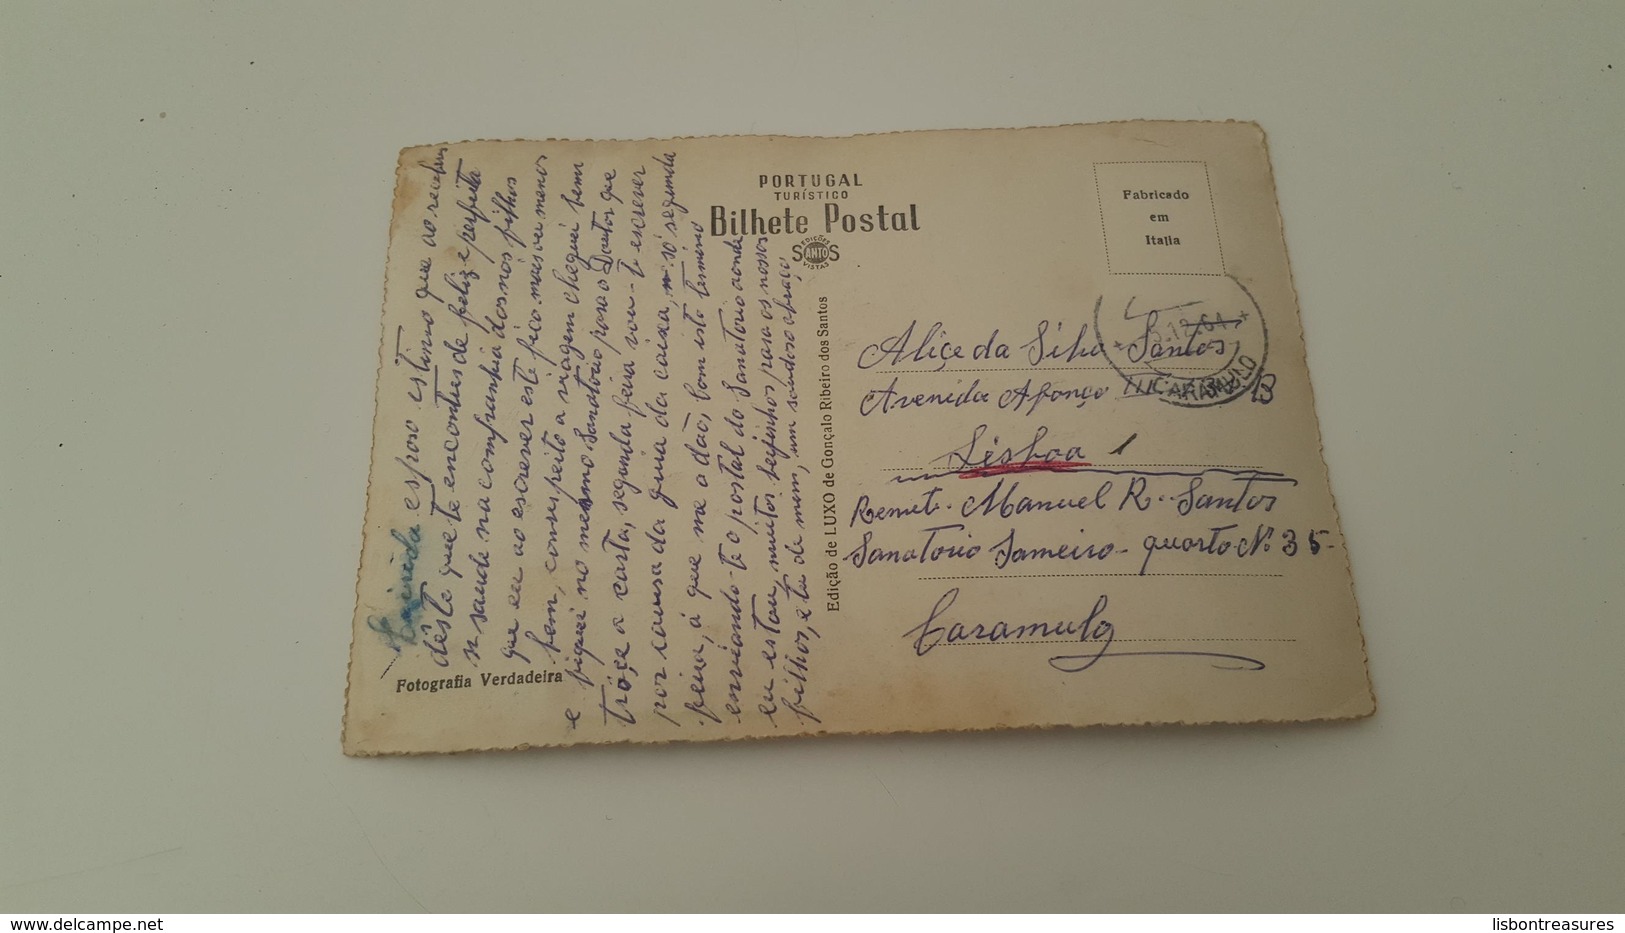 Querida esposo estimo que ao receberes
dêste que te encontres de feliz e perfeita
saude na companhia dos nós filhos
que eu ao escrever este fico mais ou menos
bem, com respeito a viagem cheguei bem
e fiquei no mesmo Sanatorio para o Doutor que
troçe a carta, segunda feira vou-te escrever
por causa da guia da caixa, só segunda
feira, á que me a dão, com isto termino
enviando-te o postal do Sanatorio aonde
eu estou, muitos beijinhos para os nossos
filhos, e tu de mim, um saudoso abraço,
Fotografia Verdadeira
PORTUGAL
TURÍSTICO
Bilhete Postal
EDIÇÕES
SANTOS
VISTAS
Edição de LUXO de Gonçalo Ribeiro dos Santos
Fabricado
em
Italia
12.61
CARAMULO
Aliçe da Silva Santos
Avenida Afonço III B
Lisboa 1
Remet. Manuel R. Santos
Sanatorio Sameiro - quarto Nº 35-
Caramulo
http://www.delcampe.net
lisbontreasures